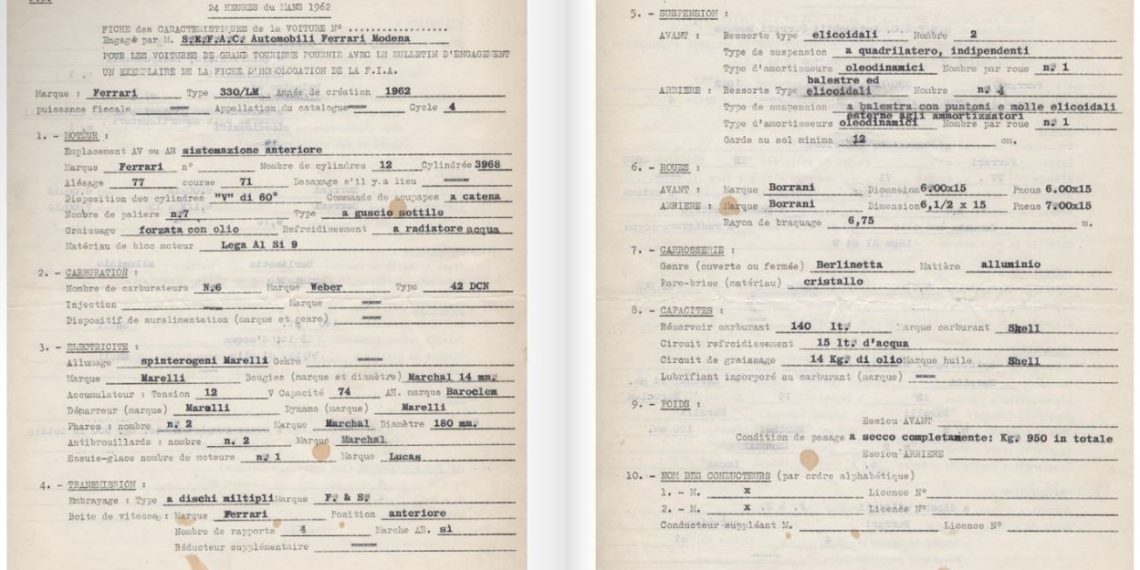 24 HEURES du MANS 1962
FICHE des CARACTERISTIQUES de la VOITURE N° ................
Engagé par M. S.E.F.A.C. Automobili Ferrari Modena
POUR LES VOITURES DE GRAND TOURISME FOURNIR AVEC LE BULLETIN D'ENGAGEMENT
UN EXEMPLAIRE DE LA FICHE D'HOMOLOGATION DE LA F.I.A.
Marque : Ferrari Type 330/LM Année de création 1962
puissance fiscale Appellation du catalogue Cycle 4
1. - MOTEUR :
Emplacement AV ou AR sistemazione anteriore
Marque Ferrari n° Nombre de cylindres 12 Cylindrée 3968
Alésage 77 course 71 Desaxage s'il y.a lieu
Disposition des cylindres "V" di 60° Commande de soupapes a catena
Nombre de paliers n.7 Type a guscio sottile
Graissage forzata con olio Refroidissement a radiatore acqua
Matériau de bloc moteur Lega Al Si 9
2. - CARBURATION :
Nombre de carburateurs N.6 Marque Weber Type 42 DCN
Injection Marque
Dispositif de suralimentation (marque et genre)
3. - ELECTRICITE :
Allumage spinterogeni Marelli Genre
Marque Marelli Bougies (marque et diamètre) Marchal 14 mm.
Accumulateur : Tension 12 V Capacité 74 AH. marque Baroclem
Démarreur (marque) Marelli Dynamo (marque) Marelli
Phares : nombre n. 2 Marque Marchal Diamètre 180 mm.
Antibrouillards : nombre n. 2 Marque Marchal
Essuie-glace nombre de moteurs n. 1 Marque Lucas
4. - TRANSMISSION :
Embrayage : Type a dischi miltipli Marque F. & S.
Boite de vitesse : Marque Ferrari Position anteriore
Nombre de rapports 4 Marche AR. si
Réducteur supplémentaire
5. - SUSPENSION :
AVANT : Ressorts type elicoidali Nombre 2
Type de suspension a quadrilatero, indipendenti
Type d'amortisseurs oleodinamici Nombre par roue n. 1
balestre ed
ARRIERE : Ressorts Type elicoidali Nombre n. 4
Type de suspension a balestra con puntoni e molle elicoidali
esterne agli ammortizzatori
Type d'amortisseurs oleodinamici Nombre par roue n. 1
Garde au sol minima 12 cm.
6. - ROUES :
AVANT : Marque Borrani Dimension 6.00x15 Pneus 6.00x15
ARRIERE : Marque Borrani Dimension 6,1/2 x 15 Pneus 7.00x15
Rayon de braquage 6,75 m.
7. - CARROSSERIE :
Genre (ouverte ou fermée) Berlinetta Matière alluminio
Pare-brise (matériau) cristallo
8. - CAPACITES :
Réservoir carburant 140 lt. Marque carburant Shell
Circuit refroidissement 15 lt. d'acqua
Circuit de graissage 14 Kg. di olio Marque huile Shell
Lubrifiant incorporé au carburant (marque)
9. - POIDS :
Essieu AVANT
Condition de pesage a secco completamente: Kg. 950 in totale
Essieu ARRIERE
10. - NOM DES CONDUCTEURS (par ordre alphabétique)
1. - M. x Licence N°
2. - M. x Licence N°
Conducteur suppléant M. Licence N°